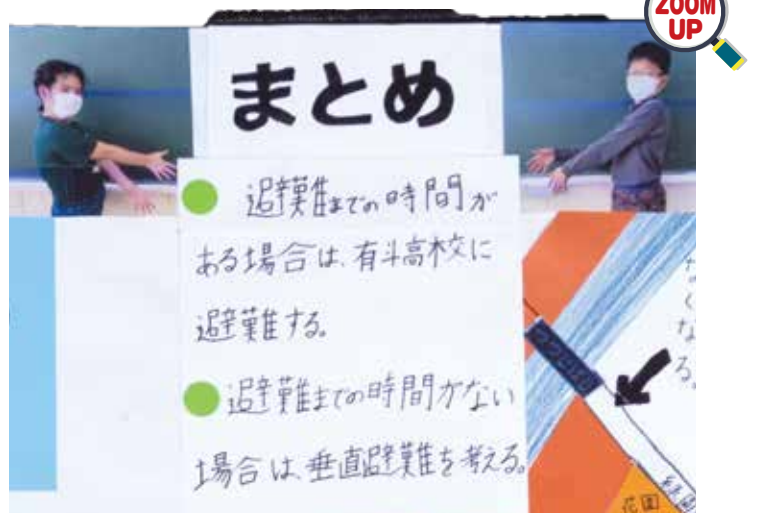 ZOOM
UP
まとめ
● 避難までの時間が
ある場合は、有斗高校に
避難する。
● 避難までの時間がない
場合は、垂直避難を考える。
なくなる。
花園